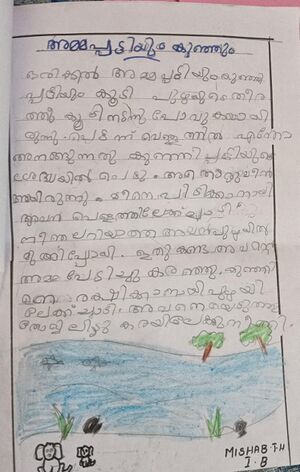 അമ്മപ്പട്ടിയും കുഞ്ഞും
ഒരിക്കൽ അമ്മപട്ടിയും കുഞ്ഞി
പ്പട്ടിയും കൂടി പുഴയുടെ തീര
ത്ത് കൂടി നടന്നു പോവുകയായി
രുന്നു. പെട്ടന്ന് വെള്ളത്തിൽ എന്തോ
അനങ്ങുന്നതു കുഞ്ഞിപ്പട്ടിയുടെ
ശ്രദ്ധയിൽ പെട്ടു. അത് താറാവ്
ആയിരുന്നു. പിടിക്കാനായി
അവൻ വെള്ളത്തിലേക്ക് ചാടി
നീന്തലറിയാത്ത അവൻ പുഴയിൽ
മുങ്ങിപ്പോയി. ഇതു കണ്ട അവന്റെ
അമ്മ പേടിച്ചു കരഞ്ഞു. കുഞ്ഞി
നെ രക്ഷിക്കാനായി പുഴയി
ലേക്ക് ചാടി. അവനെയെടുത്തു
കരയിലേക്കു നീന്തി.
MISHAB.T.H
I.B